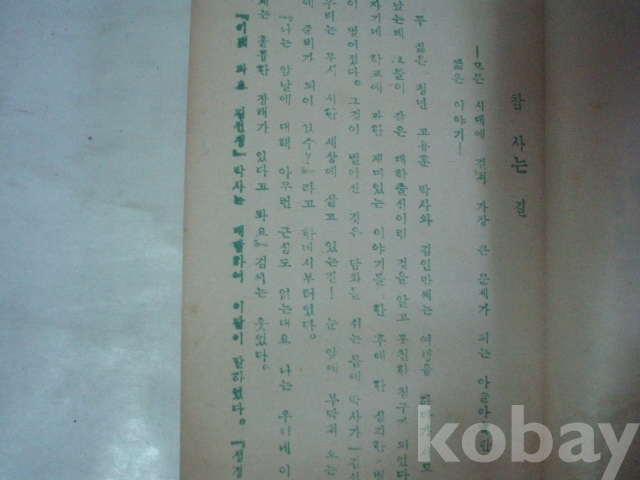 참 사는 길
―모든 시대에 걸쳐 가장 큰 문제가 되는
짧은 이야기―
두 젊은 청년 고용훈 박사와 김인만씨는 여행을
났는데 그들이 같은 대학출신이란 것을 알고 친한 친구가 되었다
자기네 학교에 관한 재미있는 이야기를 한 후에 한 심각한
이 벌어졌다. 그것이 벌어진 것은 담화를 쉬는 틈에 박사가
우리는 무시 시한 세상에 살고 있는걸! 눈 앞에 부닥쳐 오는
에 준비가 되어 있수?』라고 한데서부터였다.
『나는 앞날에 대해 아무런 근심도 없는데요 나는 우리에
게는 훌륭한 장래가 있다고 봐요』김씨는 웃었다.
박사는 대답하여 이같이 말하였다. 『성경
kobay